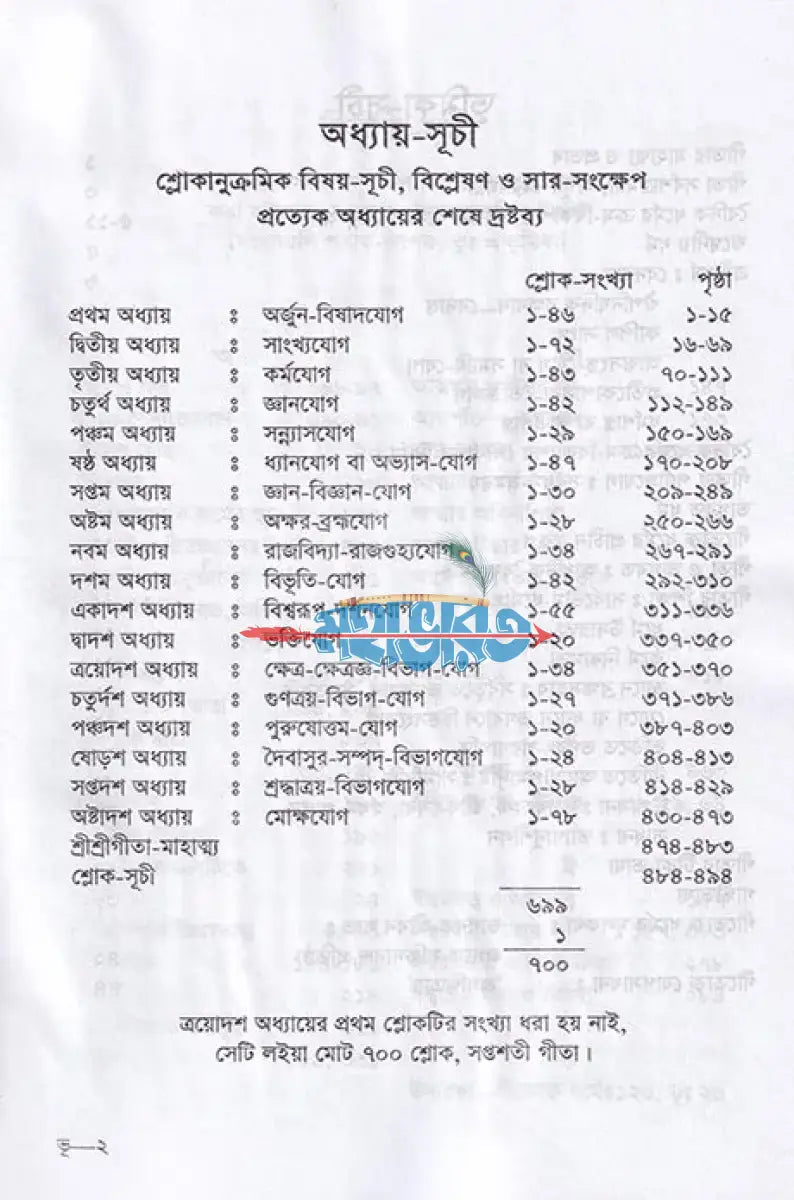 অধ্যায়-সূচী
শ্লোকানুক্রমিক বিষয়-সূচী, বিশ্লেষণ ও সার-সংক্ষেপ
প্রত্যেক অধ্যায়ের শেষে দ্রষ্টব্য
শ্লোক-সংখ্যা পৃষ্ঠা
প্রথম অধ্যায় ঃ অর্জুন-বিষাদযোগ ১-৪৬ ১-১৫
দ্বিতীয় অধ্যায় ঃ সাংখ্যযোগ ১-৭২ ১৬-৬৯
তৃতীয় অধ্যায় ঃ কর্মযোগ ১-৪৩ ৭০-১১১
চতুর্থ অধ্যায় ঃ জ্ঞানযোগ ১-৪২ ১১২-১৪৯
পঞ্চম অধ্যায় ঃ সন্ন্যাসযোগ ১-২৯ ১৫০-১৬৯
ষষ্ঠ অধ্যায় ঃ ধ্যানযোগ বা অভ্যাস-যোগ ১-৪৭ ১৭০-২০৮
সপ্তম অধ্যায় ঃ জ্ঞান-বিজ্ঞান-যোগ ১-৩০ ২০৯-২৪৯
অষ্টম অধ্যায় ঃ অক্ষর-ব্রহ্মযোগ ১-২৮ ২৫০-২৬৬
নবম অধ্যায় ঃ রাজবিদ্যা-রাজগুহ্যযোগ ১-৩৪ ২৬৭-২৯১
দশম অধ্যায় ঃ বিভূতি-যোগ ১-৪২ ২৯২-৩১০
একাদশ অধ্যায় ঃ বিশ্বরূপ-দর্শনযোগ ১-৫৫ ৩১১-৩৩৬
দ্বাদশ অধ্যায় ঃ ভক্তিযোগ ১-২০ ৩৩৭-৩৫০
মহাভারত
ত্রয়োদশ অধ্যায় ঃ ক্ষেত্র-ক্ষেত্রজ্ঞ-বিভাগ-যোগ ১-৩৪ ৩৫১-৩৭০
চতুর্দশ অধ্যায় ঃ গুণত্রয়-বিভাগ-যোগ ১-২৭ ৩৭১-৩৮৬
পঞ্চদশ অধ্যায় ঃ পুরুষোত্তম-যোগ ১-২০ ৩৮৭-৪০৩
ষোড়শ অধ্যায় ঃ দৈবাসুর-সম্পদ্-বিভাগযোগ ১-২৪ ৪০৪-৪১৩
সপ্তদশ অধ্যায় ঃ শ্রদ্ধাত্রয়-বিভাগযোগ ১-২৮ ৪১৪-৪২৯
অষ্টাদশ অধ্যায় ঃ মোক্ষযোগ ১-৭৮ ৪৩০-৪৭৩
শ্রীশ্রীগীতা-মাহাত্ম্য ৪৭৪-৪৮৩
শ্লোক-সূচী ৪৮৪-৪৯৪
৬৯৯
১
৭০০
ত্রয়োদশ অধ্যায়ের প্রথম শ্লোকটির সংখ্যা ধরা হয় নাই,
সেটি লইয়া মোট ৭০০ শ্লোক, সপ্তশতী গীতা।
ভূ—২